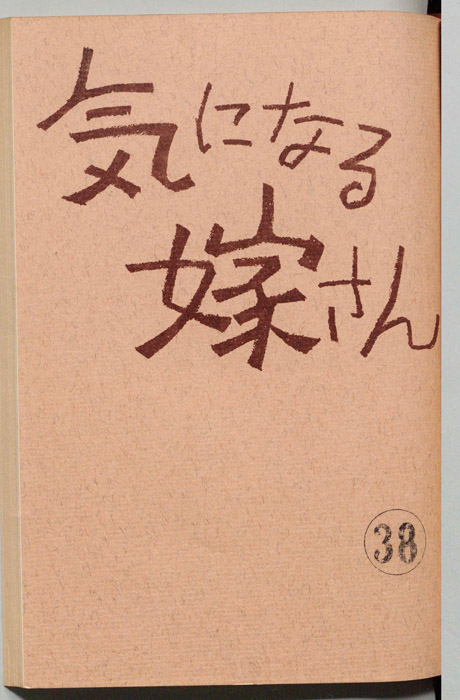 気になる
嫁さん
38